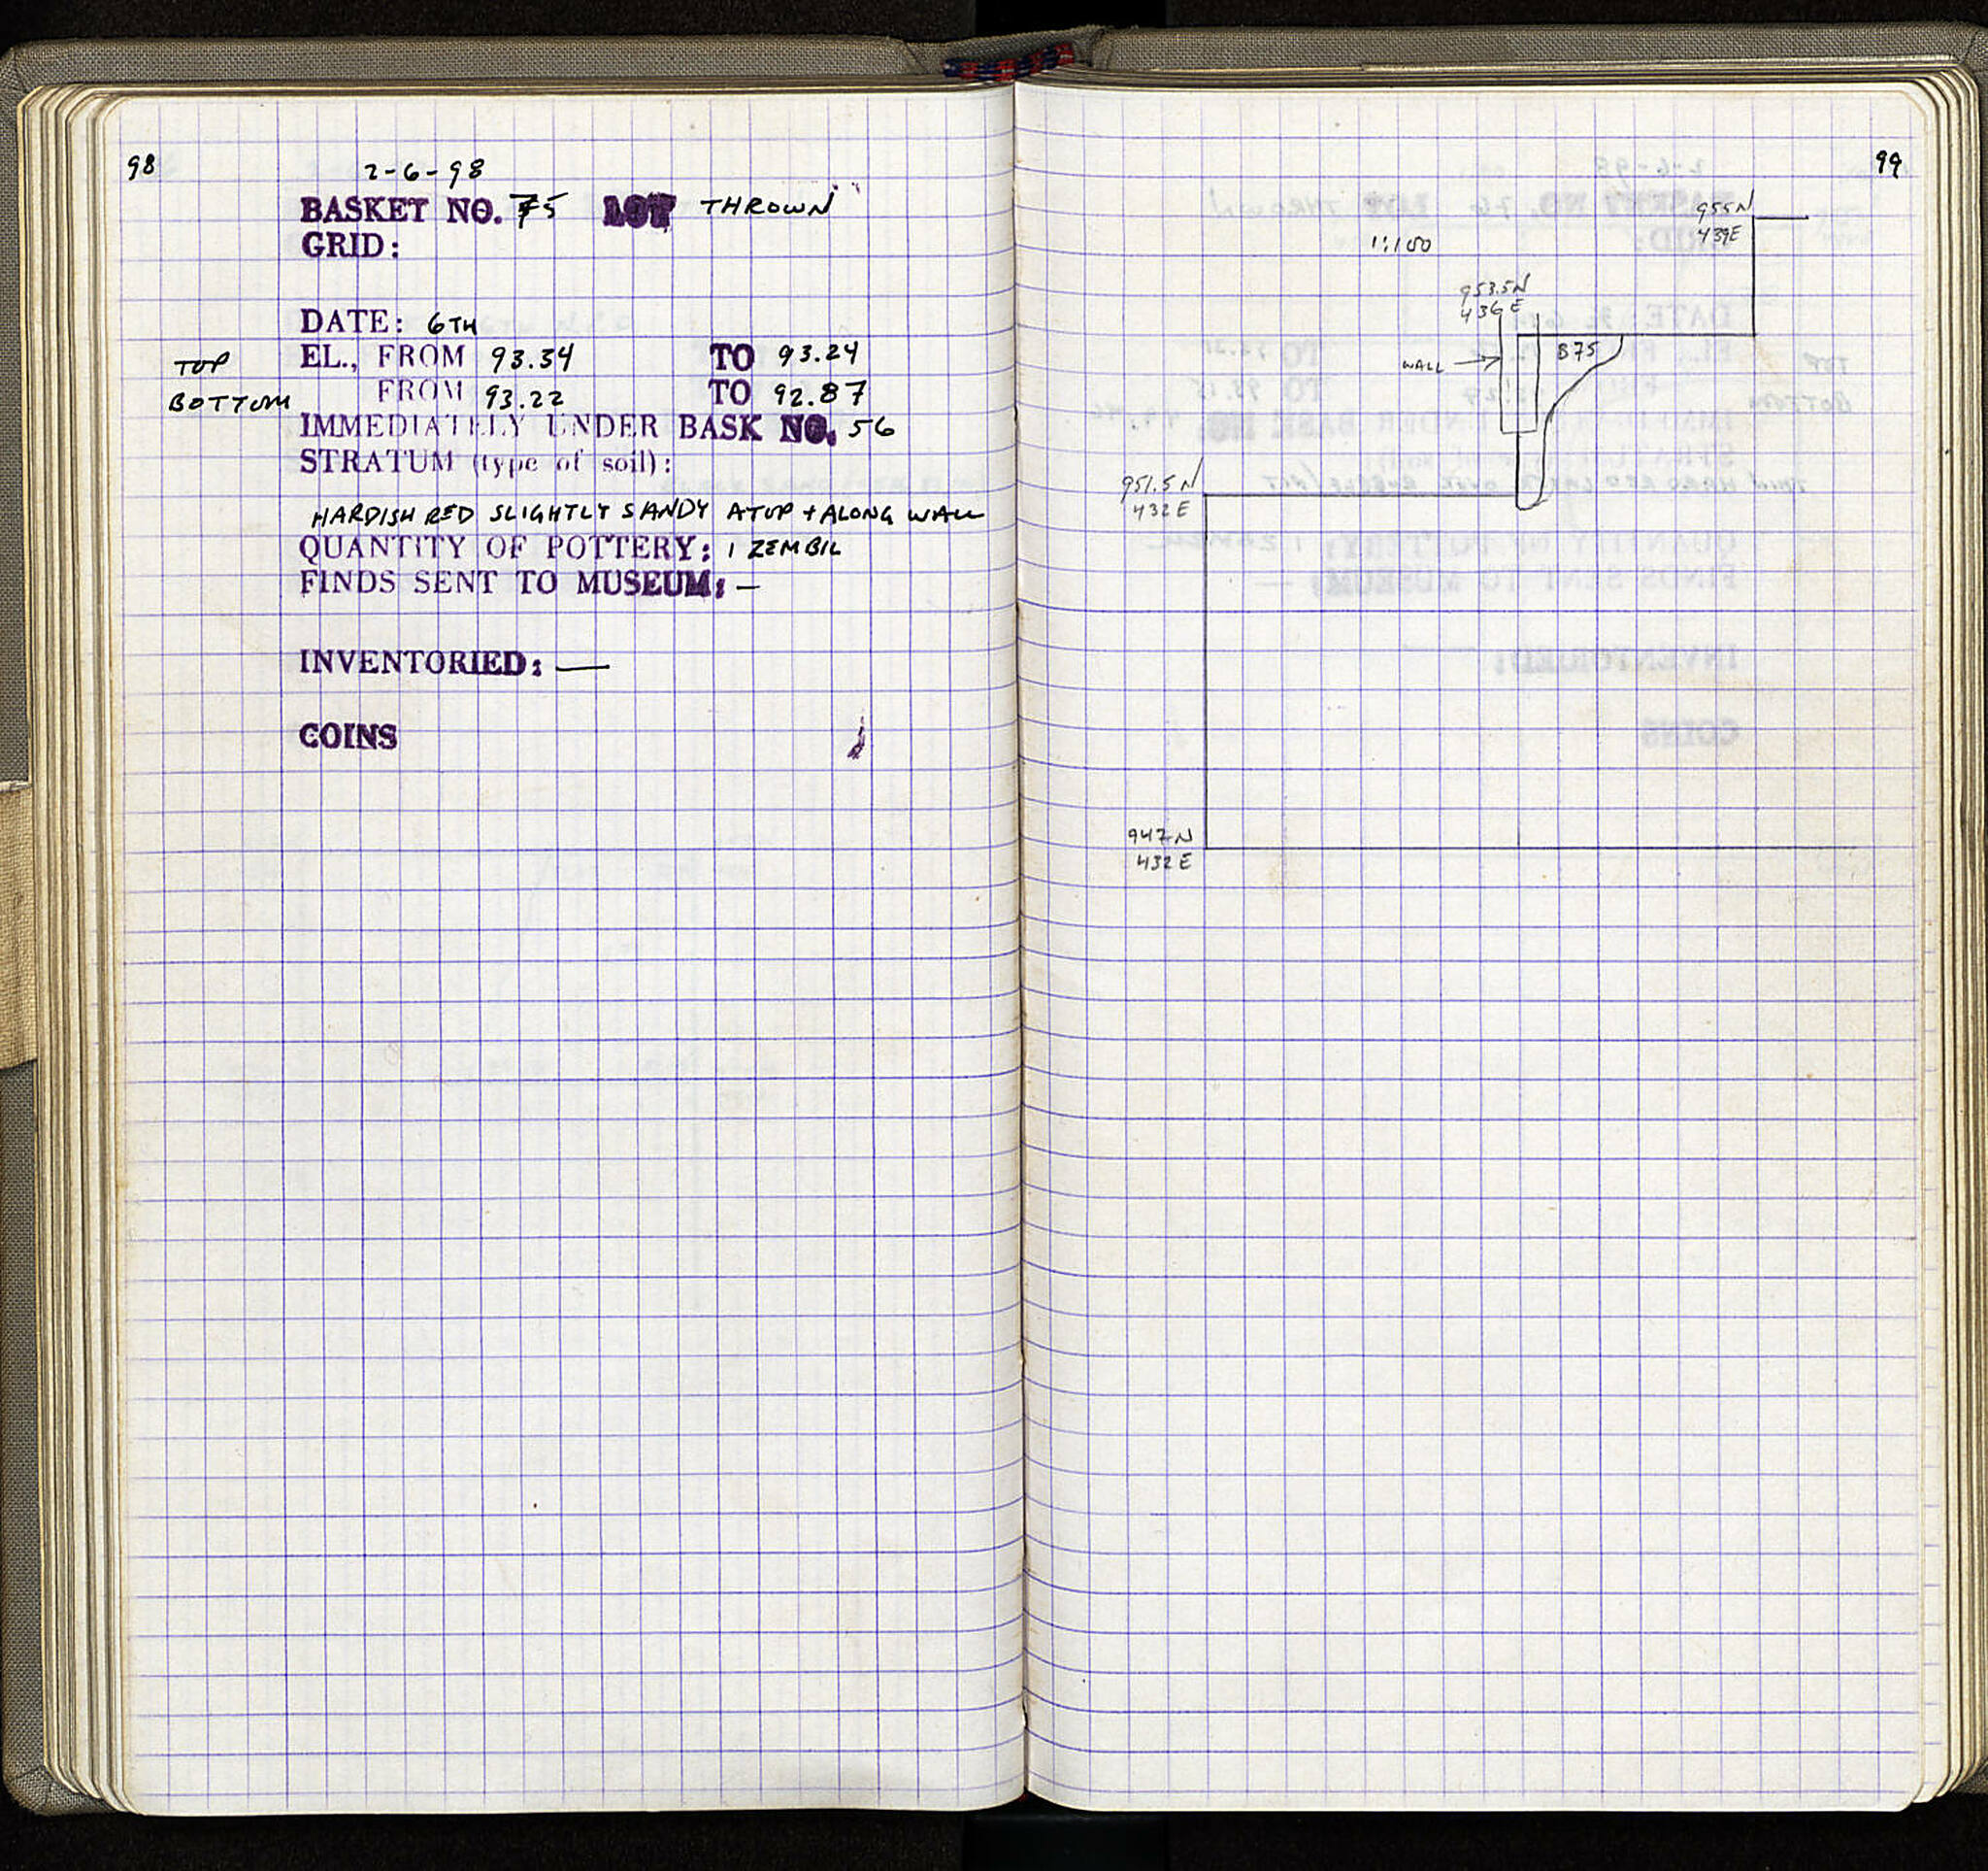 98
2-6-98
BASKET NO. 75 LOT THROWN
GRID:
DATE: 6TH
TOP EL., FROM 93.34 TO 93.24
BOTTOM FROM 93.22 TO 92.87
IMMEDIATELY UNDER BASK NO. 56
STRATUM (type of soil):
HARDISH RED SLIGHTLY SANDY ATOP + ALONG WALL
QUANTITY OF POTTERY: 1 ZEMBIL
FINDS SENT TO MUSEUM: —
INVENTORIED: —
COINS
99
955N
439E
1:100
953.5N
436E
B75
WALL
951.5N
432E
947N
432E